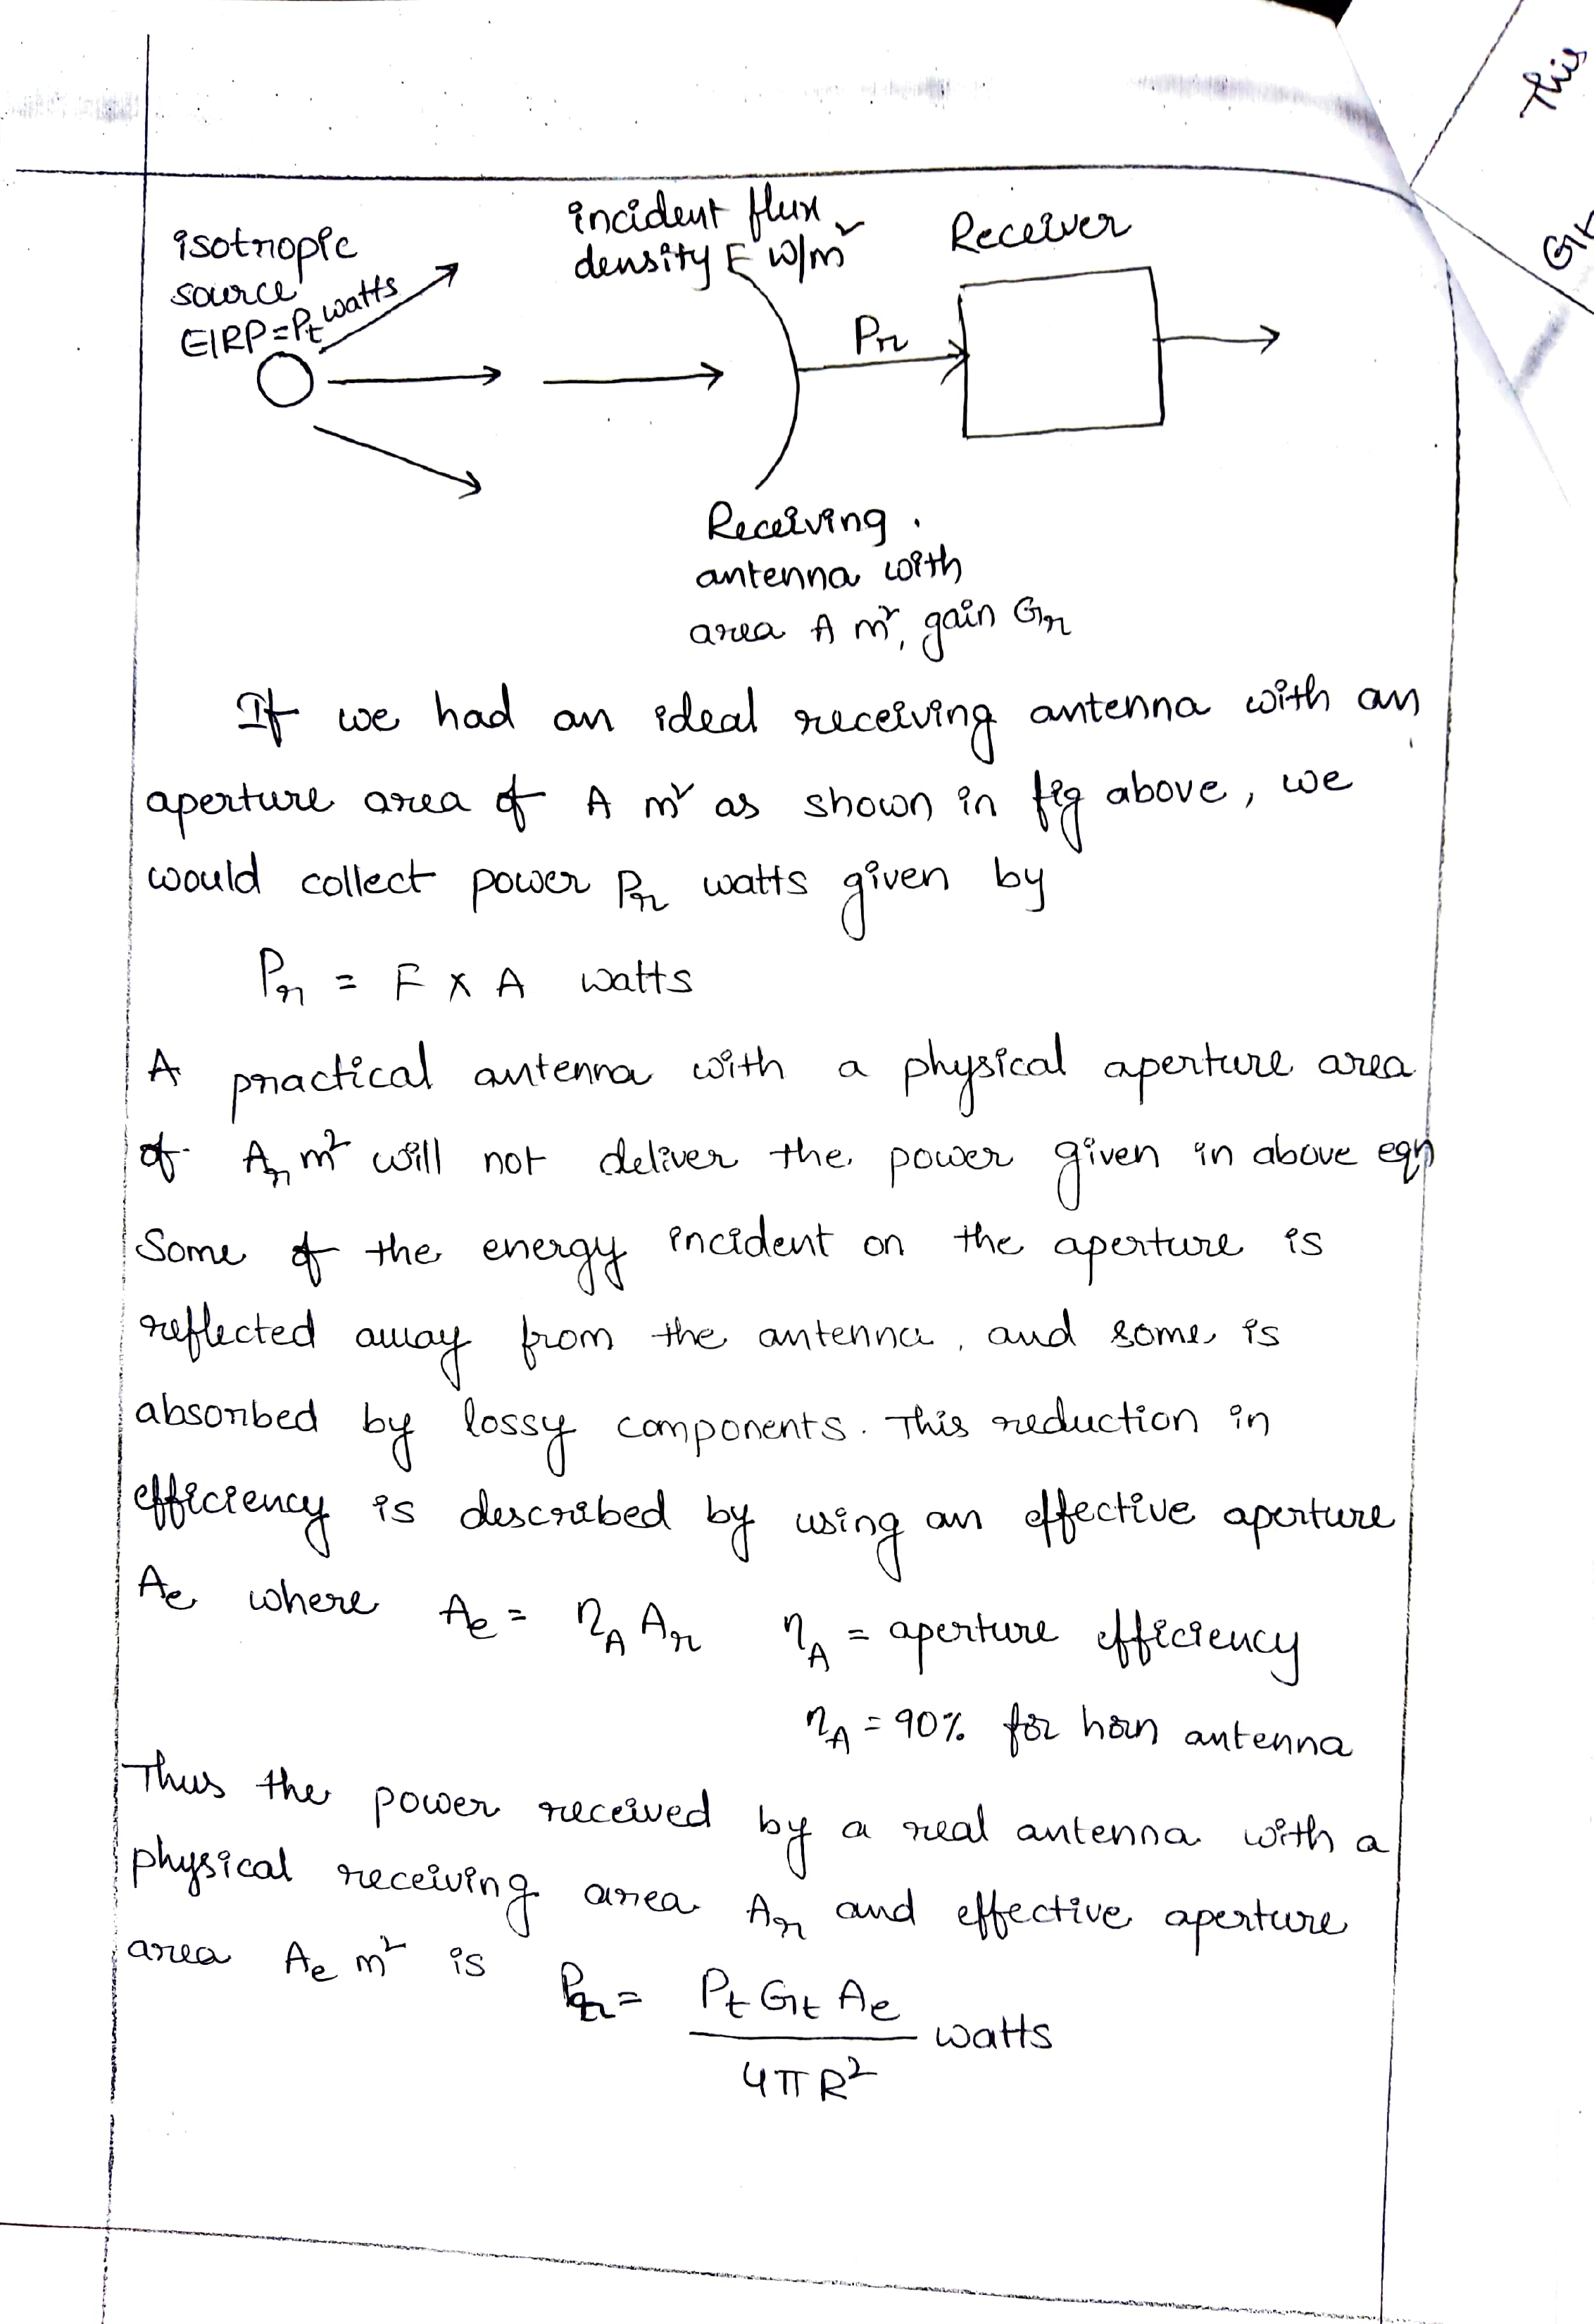 This
Gt
isotropic
source
EIRP=Pt watts
incident flux
density F W/m²
Receiver
Pr
Receiving
antenna with
area A m², gain Gr
If we had an ideal receiving antenna with an
aperture area of A m² as shown in fig above, we
would collect power Pr watts given by
Pr = F X A watts
A practical antenna with a physical aperture area
of Ar m² will not deliver the power given in above eqn
Some of the energy incident on the aperture is
reflected away from the antenna, and some is
absorbed by lossy components. This reduction in
efficiency is described by using an effective aperture
Ae where Ae = ηA Ar ηA = aperture efficiency
ηA = 90% for horn antenna
Thus the power received by a real antenna with a
physical receiving area Ar and effective aperture
area Ae m² is
Pr = Pt Gt Ae / 4πR² watts